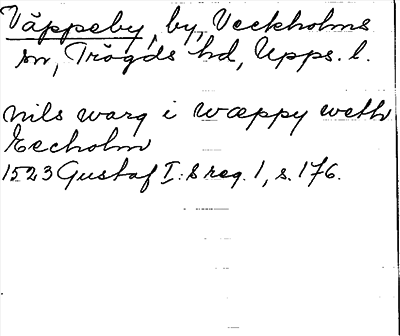 Väppeby, by, Veckholms
sn, Trögds hd, Upps. l.
Nils warg i wæppy weth
Eecholm
1523 Gustaf I:s reg. 1, s. 176.